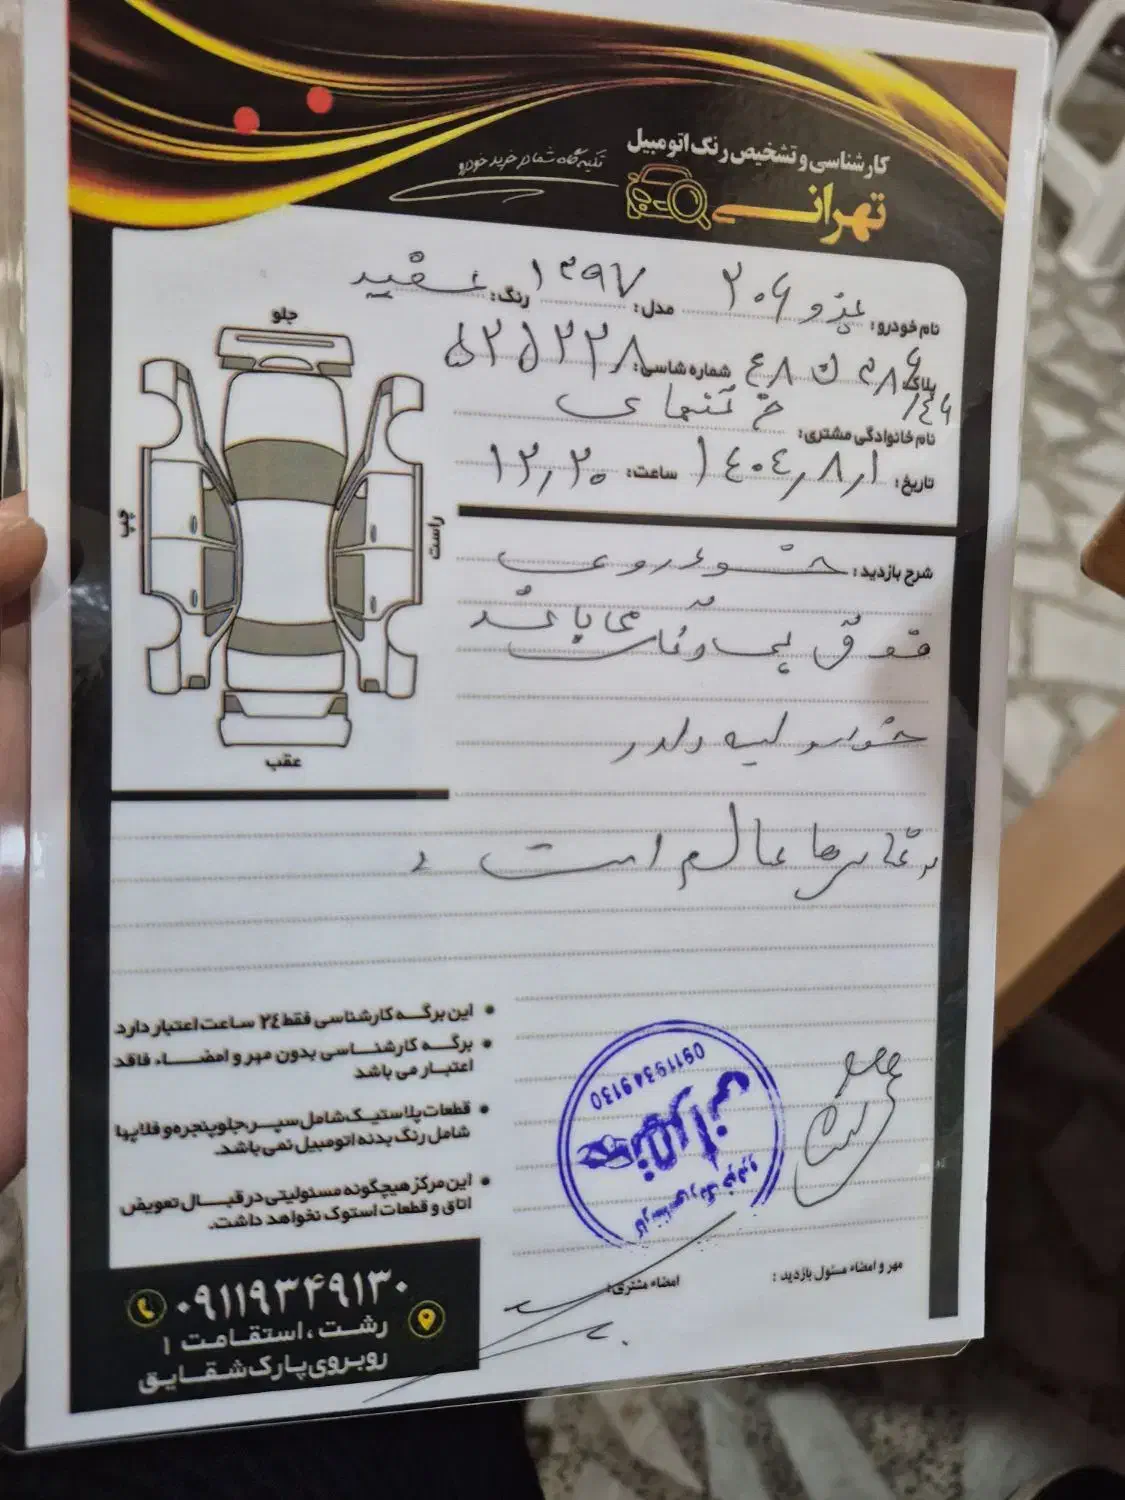 کارشناسی و تشخیص رنگ اتومبیل
تهرانی
تکیه گاه شما در خرید خودرو
نام خودرو: پژو ۲۰۶ مدل: ۱۳۹۷ رنگ: سفید
پلاک: ۴۸
شماره شاسی: ۵۲۵۲۲۸
نام خانوادگی مشتری:
تاریخ: ۱۴۰۴/۸/۱ ساعت: ۱۲/۳۰
جلو
چپ
راست
عقب
شرح بازدید: خودروی
فوق می باشد
سالم است
این برگه کارشناسی فقط ۲۴ ساعت اعتبار دارد
برگه کارشناسی بدون مهر و امضاء فاقد
اعتبار می باشد
قطعات پلاستیک شامل سپر، جلو پنجره و فلاپها
شامل رنگ بدنه اتومبیل نمی باشد.
این مرکز هیچگونه مسئولیتی در قبال تعویض
اتاق و قطعات استوک نخواهد داشت.
09119349130
تهرانی
کارشناسی رنگ خودرو
مهر و امضاء مسئول بازدید:
امضاء مشتری:
۰۹۱۱۹۳۴۹۱۳۰
رشت، استقامت ۱
روبروی پارک شقایق